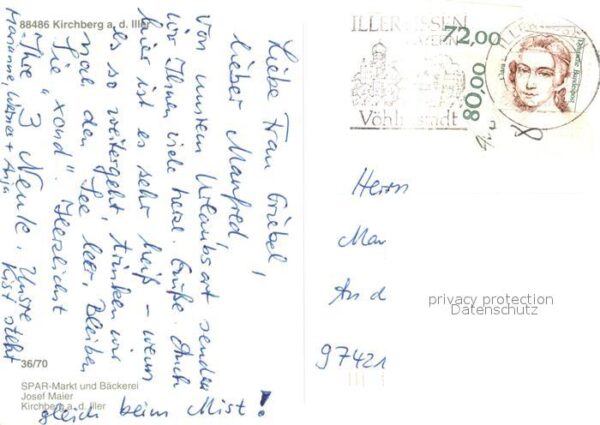 88486 Kirchberg a. d. Iller
Liebe Frau Griebel,
lieber Manfred,
von unserm Urlaubsort senden
wir Ihnen viele herzl. Grüße. Auch
hier ist es sehr heiß – wenn
es so weitergeht, trinken wir
noch den See leer. Bleiben
Sie "xond". Herzlichst
Ihre 3 Neule. Unsre
Marianne, Werner + Anja
Kist steht
gleich beim Mist!
36/70
SPAR-Markt und Bäckerei
Josef Maier
Kirchberg a. d. Iller
ILLERTISSEN
BAYERN
72,00
80,00
Vöhlinstadt
Deutsche Bundespost
Herrn
Man
And
97421
privacy protection
Datenschutz